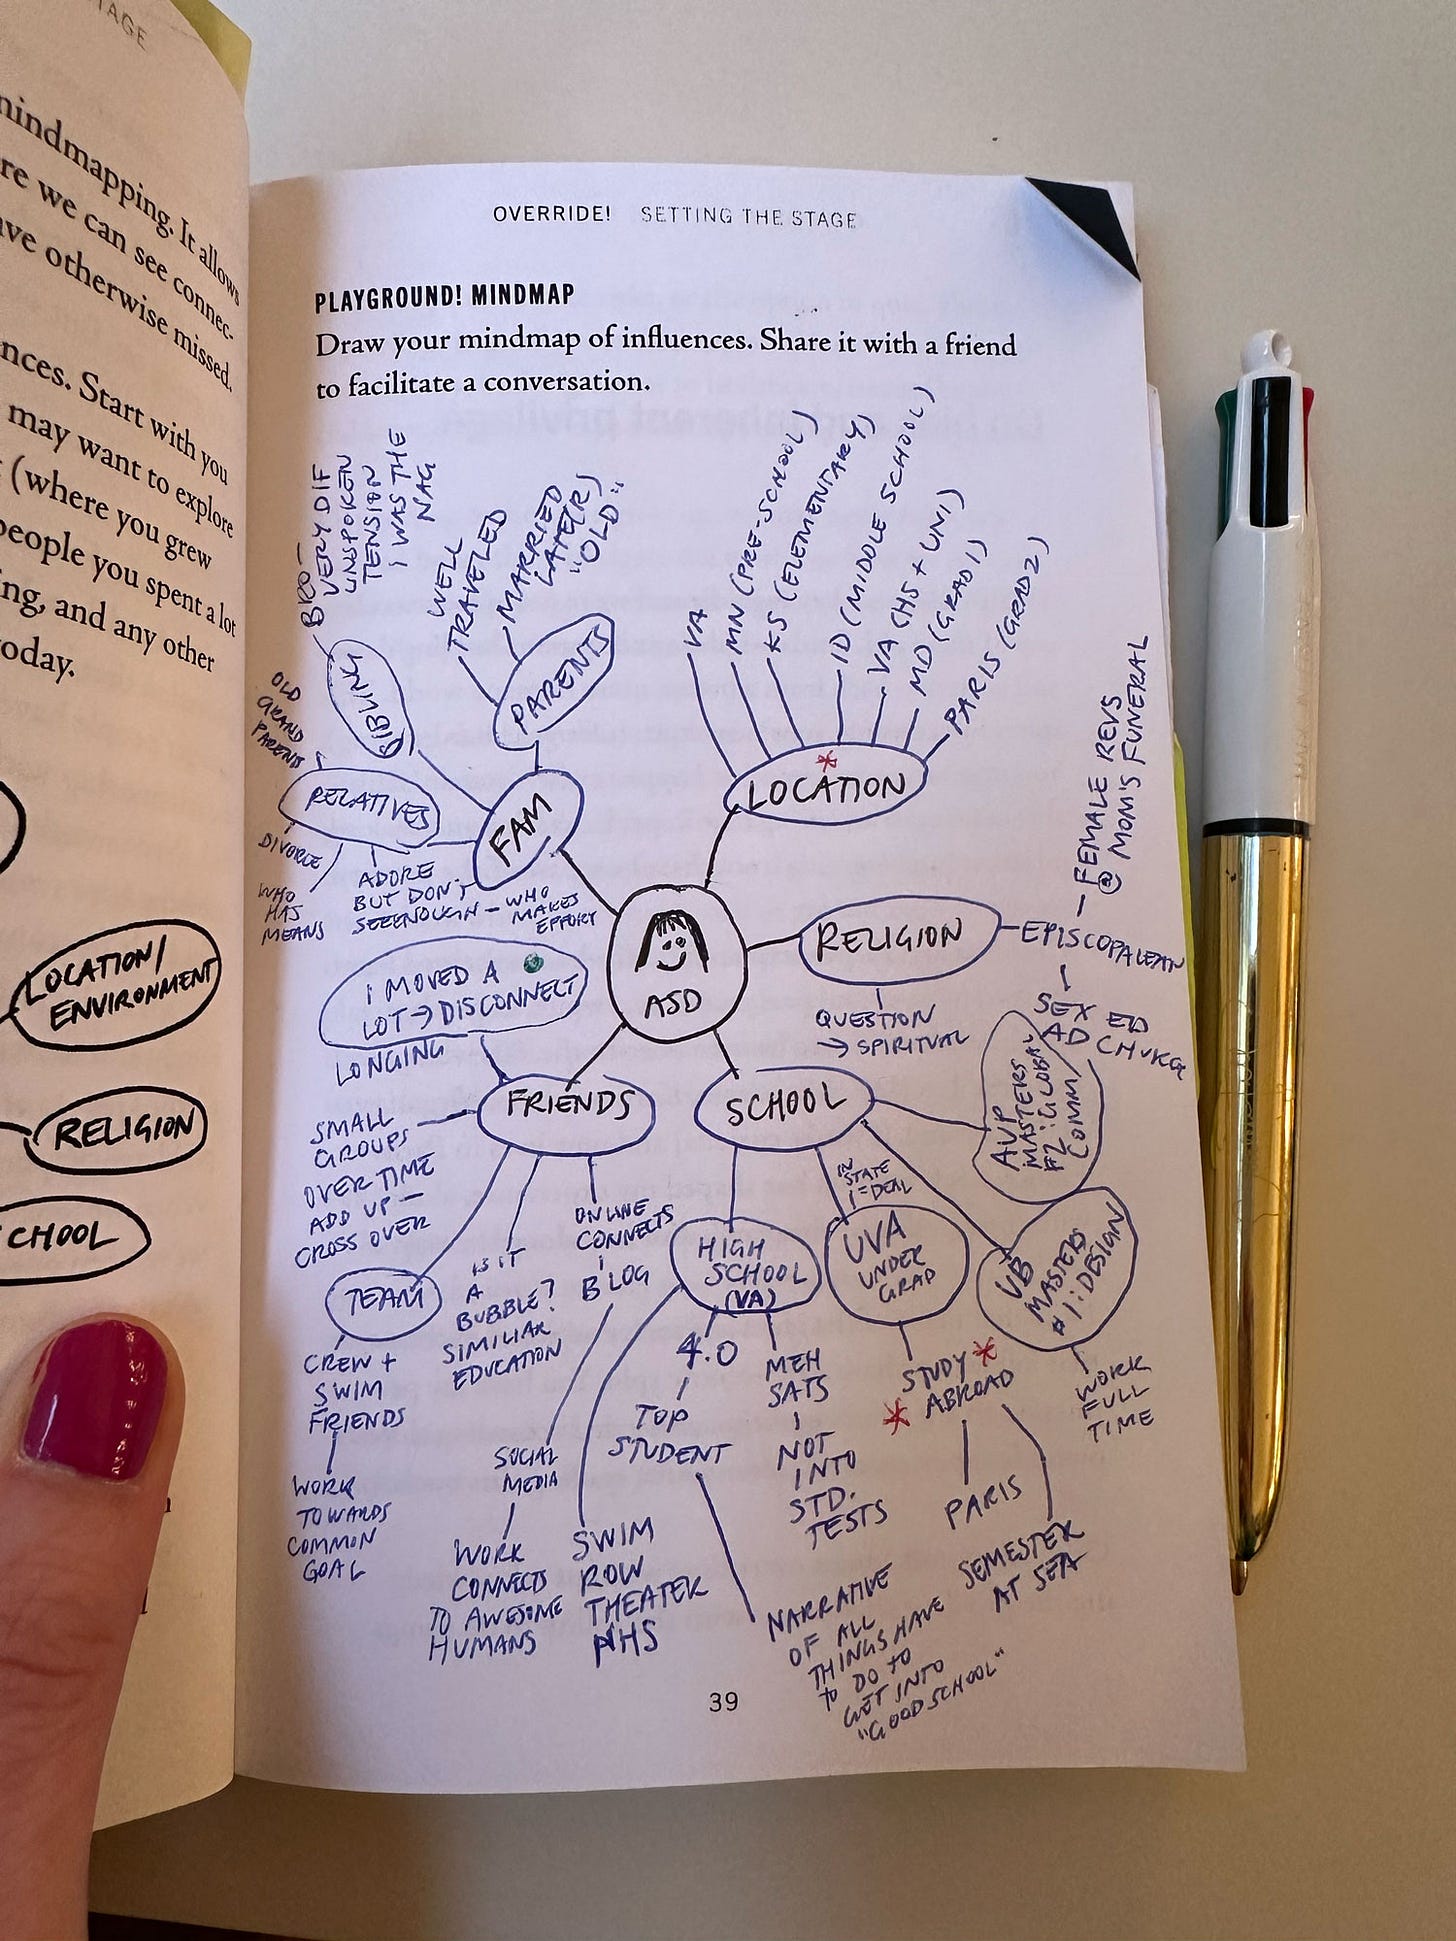 TAGE
mindmapping. It allows
re we can see connec-
ave otherwise missed.
nces. Start with you
may want to explore
(where you grew
people you spent a lot
ng, and any other
oday.
LOCATION/
ENVIRONMENT
RELIGION
CHOOL
OVERRIDE! SETTING THE STAGE
PLAYGROUND! MINDMAP
Draw your mindmap of influences. Share it with a friend
to facilitate a conversation.
BRO—
VERY DIF
UNSPOKEN
TENSION
I WAS THE
NAG
SIBLING
WELL
TRAVELED
MARRIED
LATER)
"OLD"
PARENTS
OLD
GRAND
PARENTS
RELATIVES
DIVORCE
WHO
HAS
MEANS
ADORE
BUT DON'T
SEE ENOUGH — WHO
MAKES
EFFORT
FAM
VA
MN (PRE-SCHOOL)
KS (ELEMENTARY)
ID (MIDDLE SCHOOL)
VA (HS + UNI)
MD (GRAD 1)
PARIS (GRAD 2)
* LOCATION
ASD
RELIGION
EPISCOPALEAN
FEMALE REVS
@ MOM'S FUNERAL
SEX ED
AD CHURCH
QUESTION
→ SPIRITUAL
I MOVED A
LOT → DISCONNECT
LONGING
FRIENDS
SMALL
GROUPS
OVER TIME
ADD UP —
CROSS OVER
TEAM
CREW +
SWIM
FRIENDS
WORK
TOWARDS
COMMON
GOAL
IS IT
A
BUBBLE?
SIMILIAR
EDUCATION
ONLINE
CONNECTS
BLOG
SOCIAL
MEDIA
WORK
CONNECTS
TO AWESOME
HUMANS
SCHOOL
AUP
MASTERS
#2: GLOBAL
COMM
HIGH
SCHOOL
(VA)
4.0
TOP
STUDENT
NARRATIVE
OF ALL
THINGS HAVE
TO DO TO
GET INTO
"GOOD SCHOOL"
MEH
SATS
NOT
INTO
STD.
TESTS
SWIM
ROW
THEATER
NHS
IN
STATE
= DEAL
UVA
UNDER
GRAD
STUDY *
* ABROAD
PARIS
SEMESTER
AT SEA
UB
MASTERS
#1: DESIGN
WORK
FULL
TIME
39